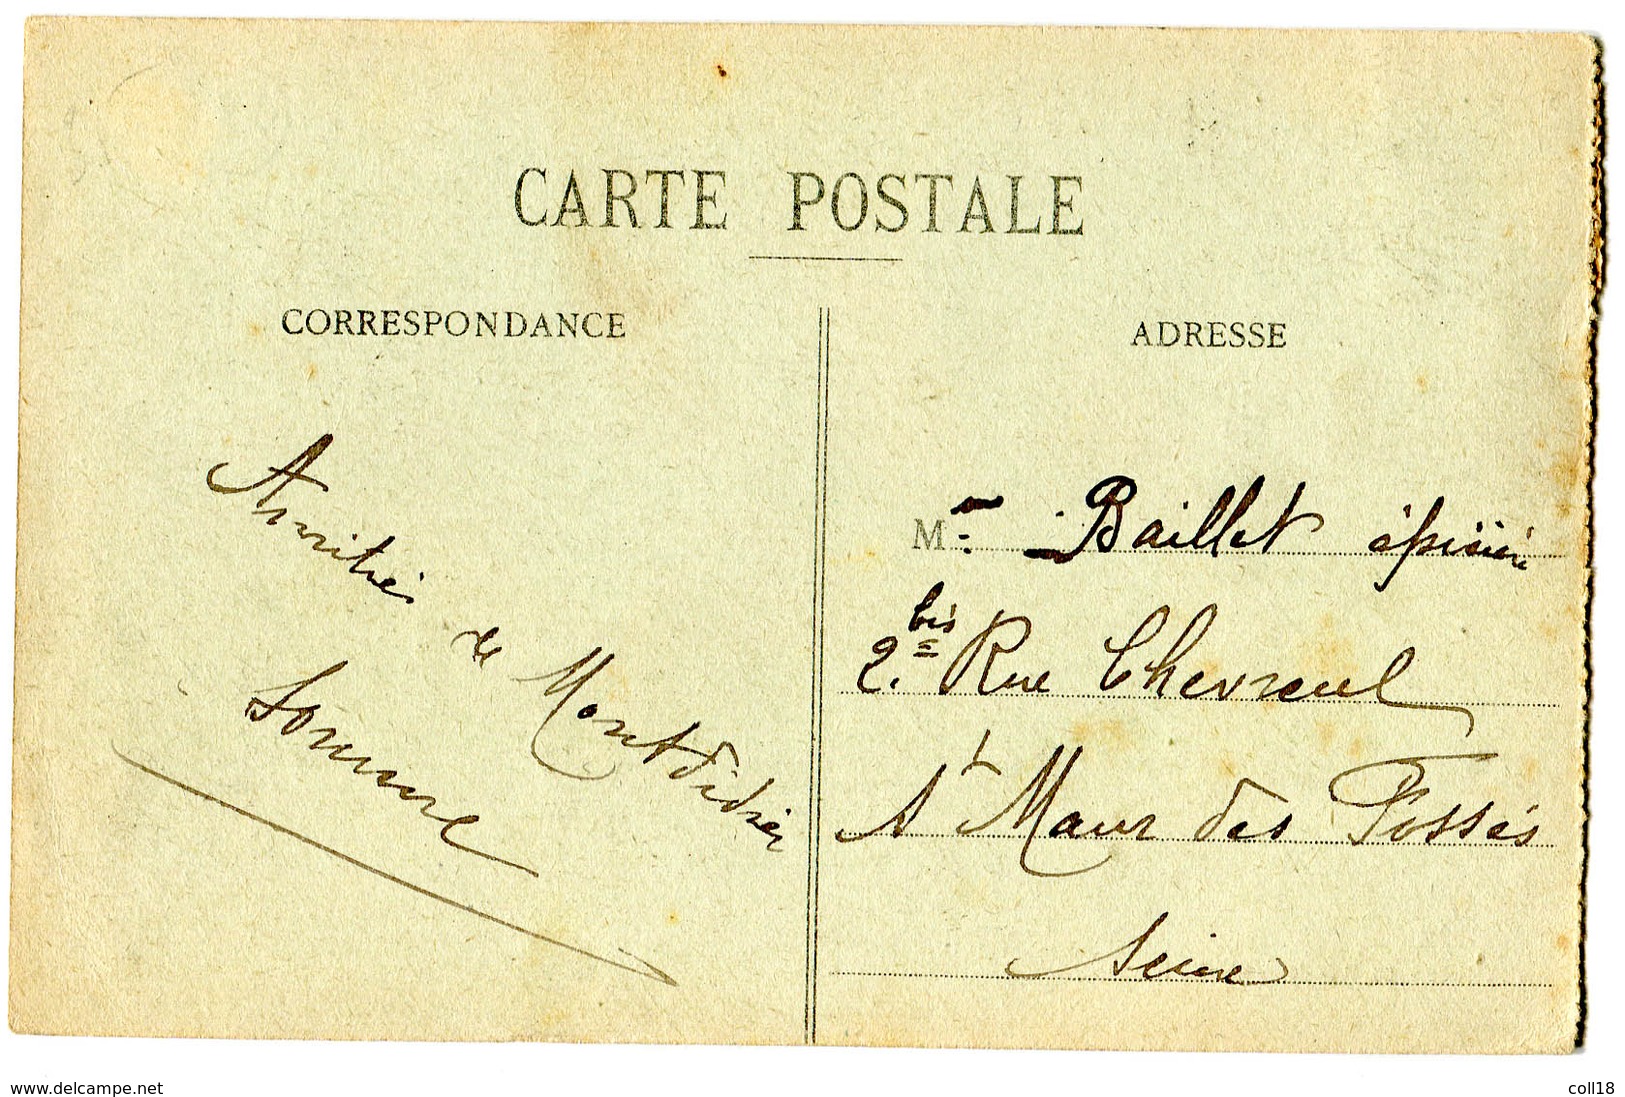 CARTE POSTALE
CORRESPONDANCE
Amitiés
de Montdidier
Somme
ADRESSE
Mr Baillet épicier
2.bis Rue Chevreul
St Maur des Fossés
Seine
www.delcampe.net
coll18